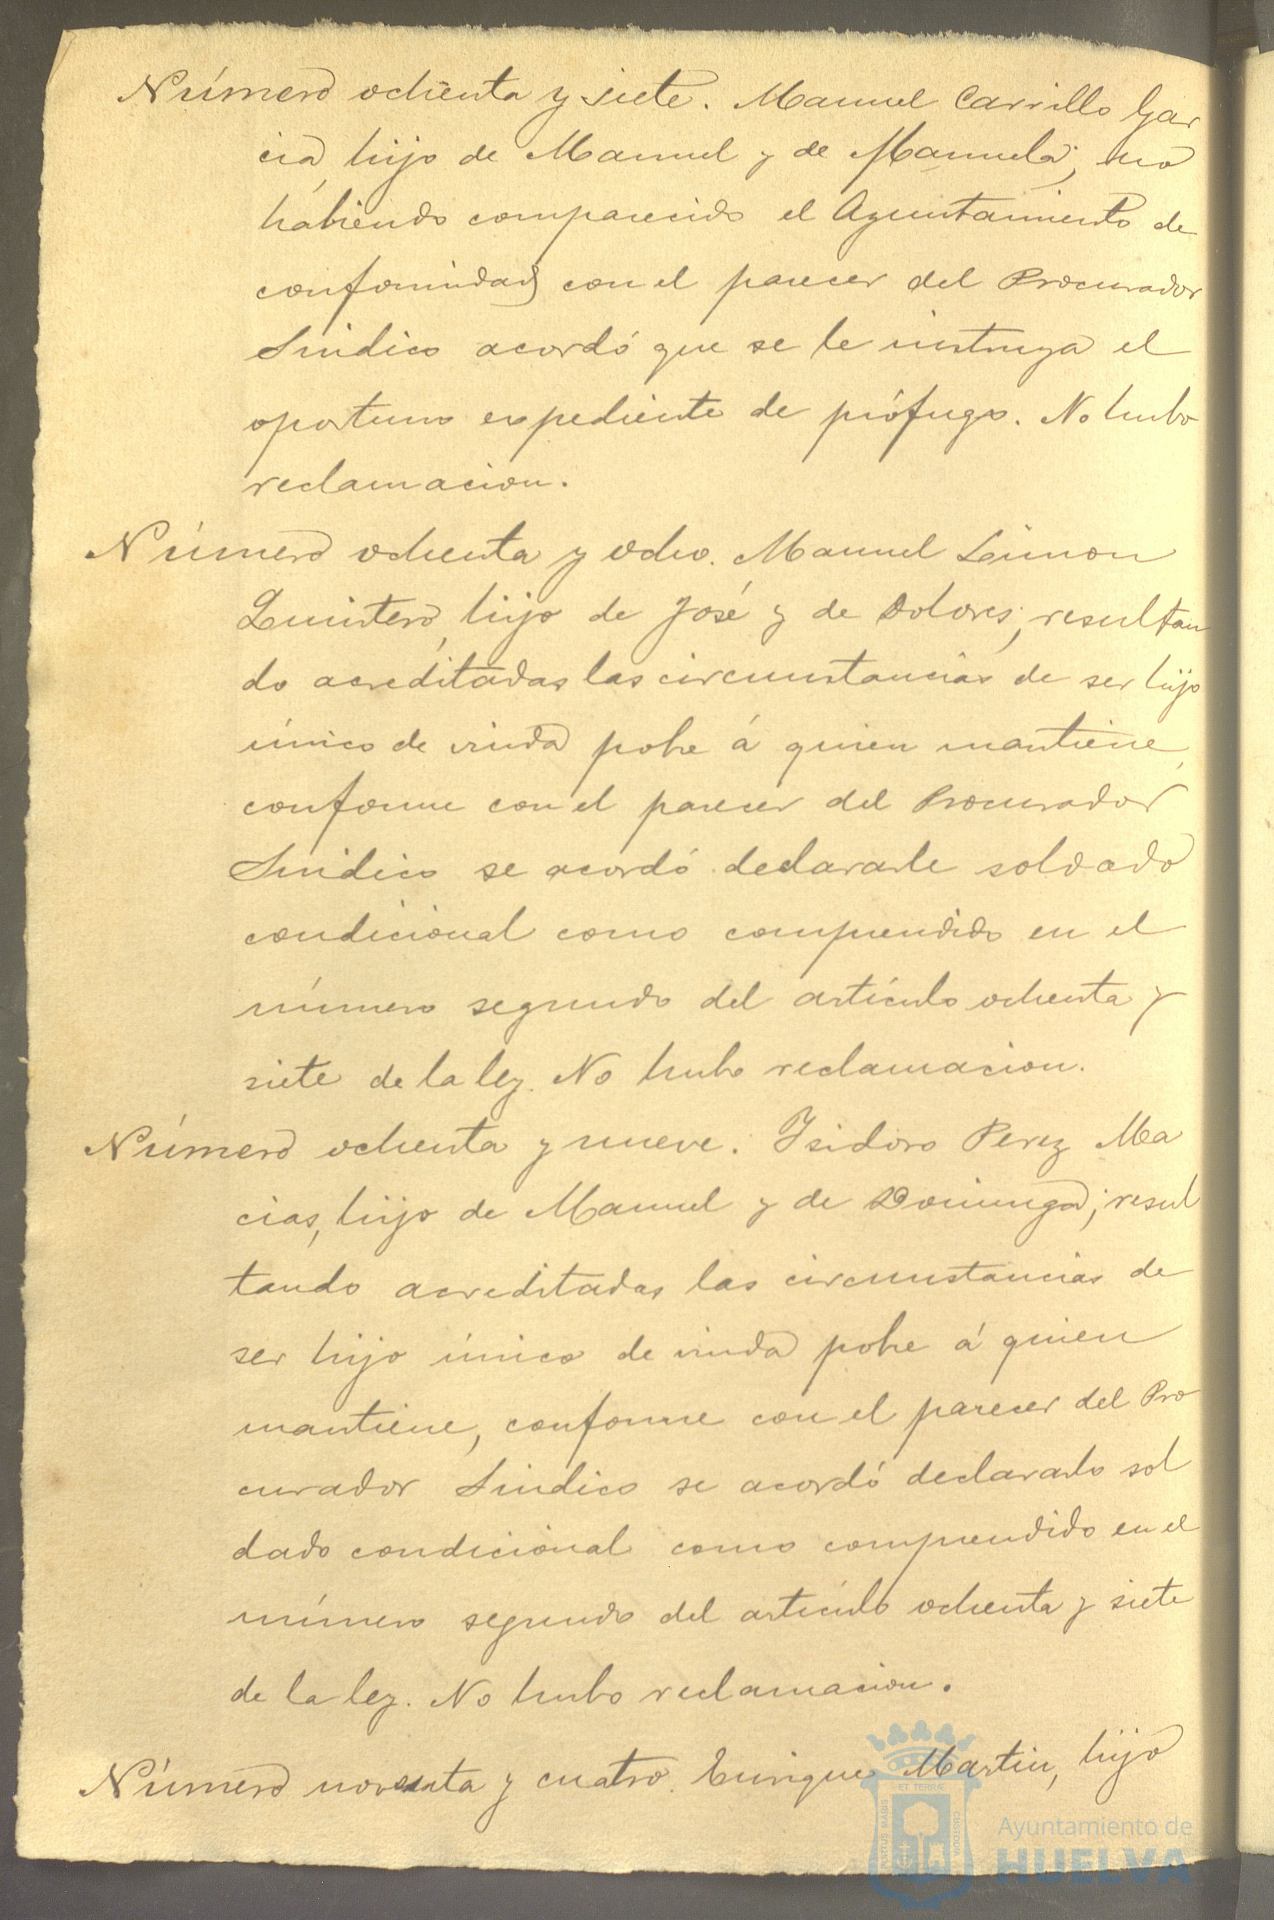 Número ochenta y siete. Manuel Carrillo Gar
cia, hijo de Manuel y de Manuela; no
habiendo comparecido el Ayuntamiento de
conformidad con el parecer del Procurador
Sindico acordó que se le instruya el
oportuno expediente de prófugo. No hubo
reclamacion.
Número ochenta y ocho. Manuel Limon
Quintero, hijo de José y de Dolores; resultan
do acreditadas las circunstancias de ser hijo
único de viuda pobre á quien mantiene,
conforme con el parecer del Procurador
Sindico se acordó declararle soldado
condicional como comprendido en el
número segundo del artículo ochenta y
siete de la ley. No hubo reclamacion.
Número ochenta y nueve. Isidoro Perez Ma
cias, hijo de Manuel y de Dominga; resul
tando acreditadas las circunstancias de
ser hijo único de viuda pobre á quien
mantiene, conforme con el parecer del Pro
curador Sindico se acordó declararlo sol
dado condicional como comprendido en el
número segundo del artículo ochenta y siete
de la ley. No hubo reclamacion.
Número noventa y cuatro. Enrique Martin, hijo
ET TERRÆ
PORTUS MARIS
CUSTODIA
Ayuntamiento de
HUELVA